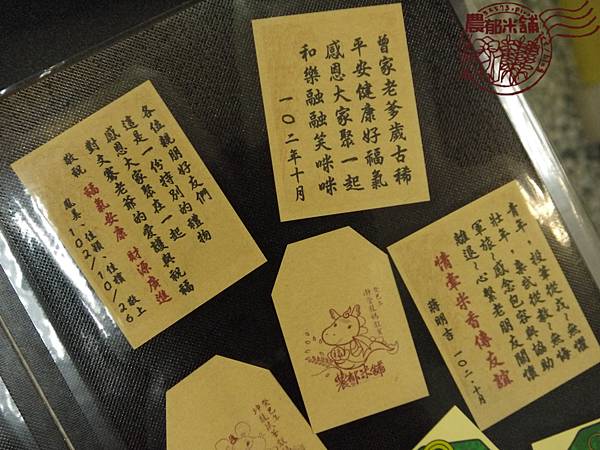 農郁米舖
曾家老爹歲古稀
平安健康好福氣
感恩大家聚一起
和樂融融笑咪咪
一〇二年十月
各位親朋好友們
這是一份特別的禮物
感恩大家聚在一起
對文寮老爺的愛護與祝福
敬祝 福氣安康 財源廣進
青年，投筆從戎～無懼
壯年，棄武從教～無悔
軍旅～感念包容與協助
離退～心繫老朋友關懷
情牽米香傳友誼
蔣明吉 一〇二.十月
農郁米舖